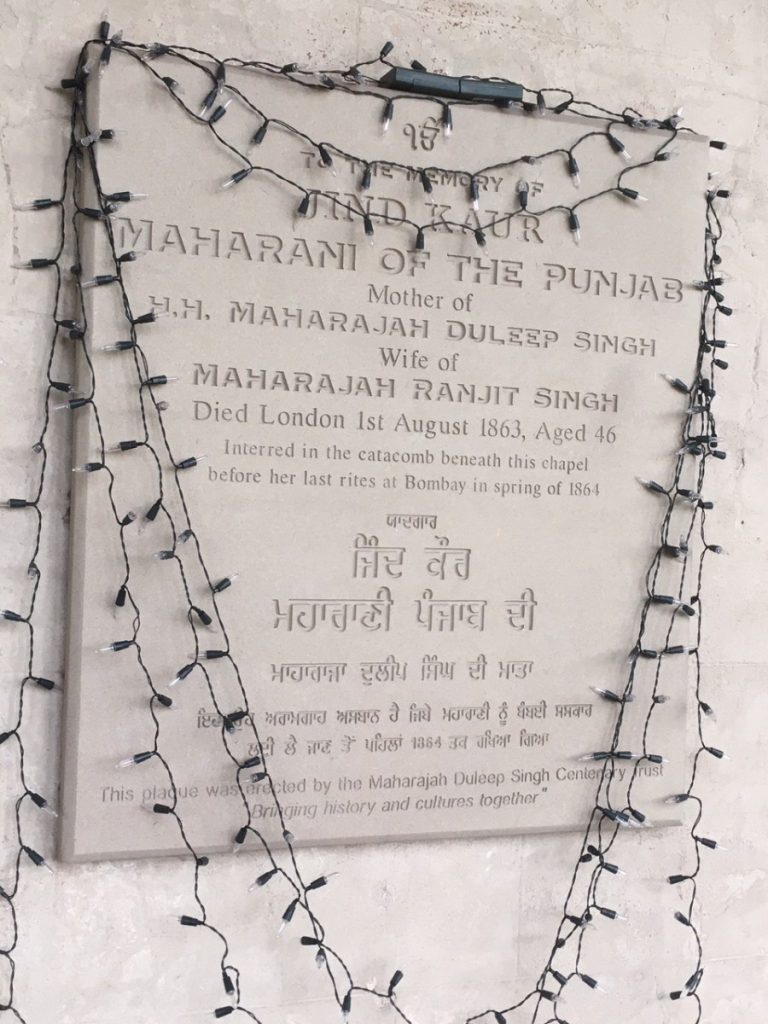 ੴ
TO THE MEMORY OF
JIND KAUR
MAHARANI OF THE PUNJAB
Mother of
H.H. MAHARAJAH DULEEP SINGH
Wife of
MAHARAJAH RANJIT SINGH
Died London 1st August 1863, Aged 46
Interred in the catacomb beneath this chapel
before her last rites at Bombay in spring of 1864
ਯਾਦਗਾਰ
ਜਿੰਦ ਕੌਰ
ਮਹਾਰਾਣੀ ਪੰਜਾਬ ਦੀ
ਮਾਹਾਰਾਜਾ ਦੁਲੀਪ ਸਿੰਘ ਦੀ ਮਾਤਾ
ਅਰਾਮਗਾਹ ਅਸਥਾਨ ਹੈ ਜਿਥੇ ਮਹਾਰਾਣੀ ਨੂੰ ਬੰਬਈ ਸਸਕਾਰ
ਲਈ ਲੈ ਜਾਣ ਤੋਂ ਪਹਿਲਾਂ 1864 ਤਕ ਰਖਿਆ ਗਿਆ
This plaque was erected by the Maharajah Duleep Singh Centenary Trust
"Bringing history and cultures together"